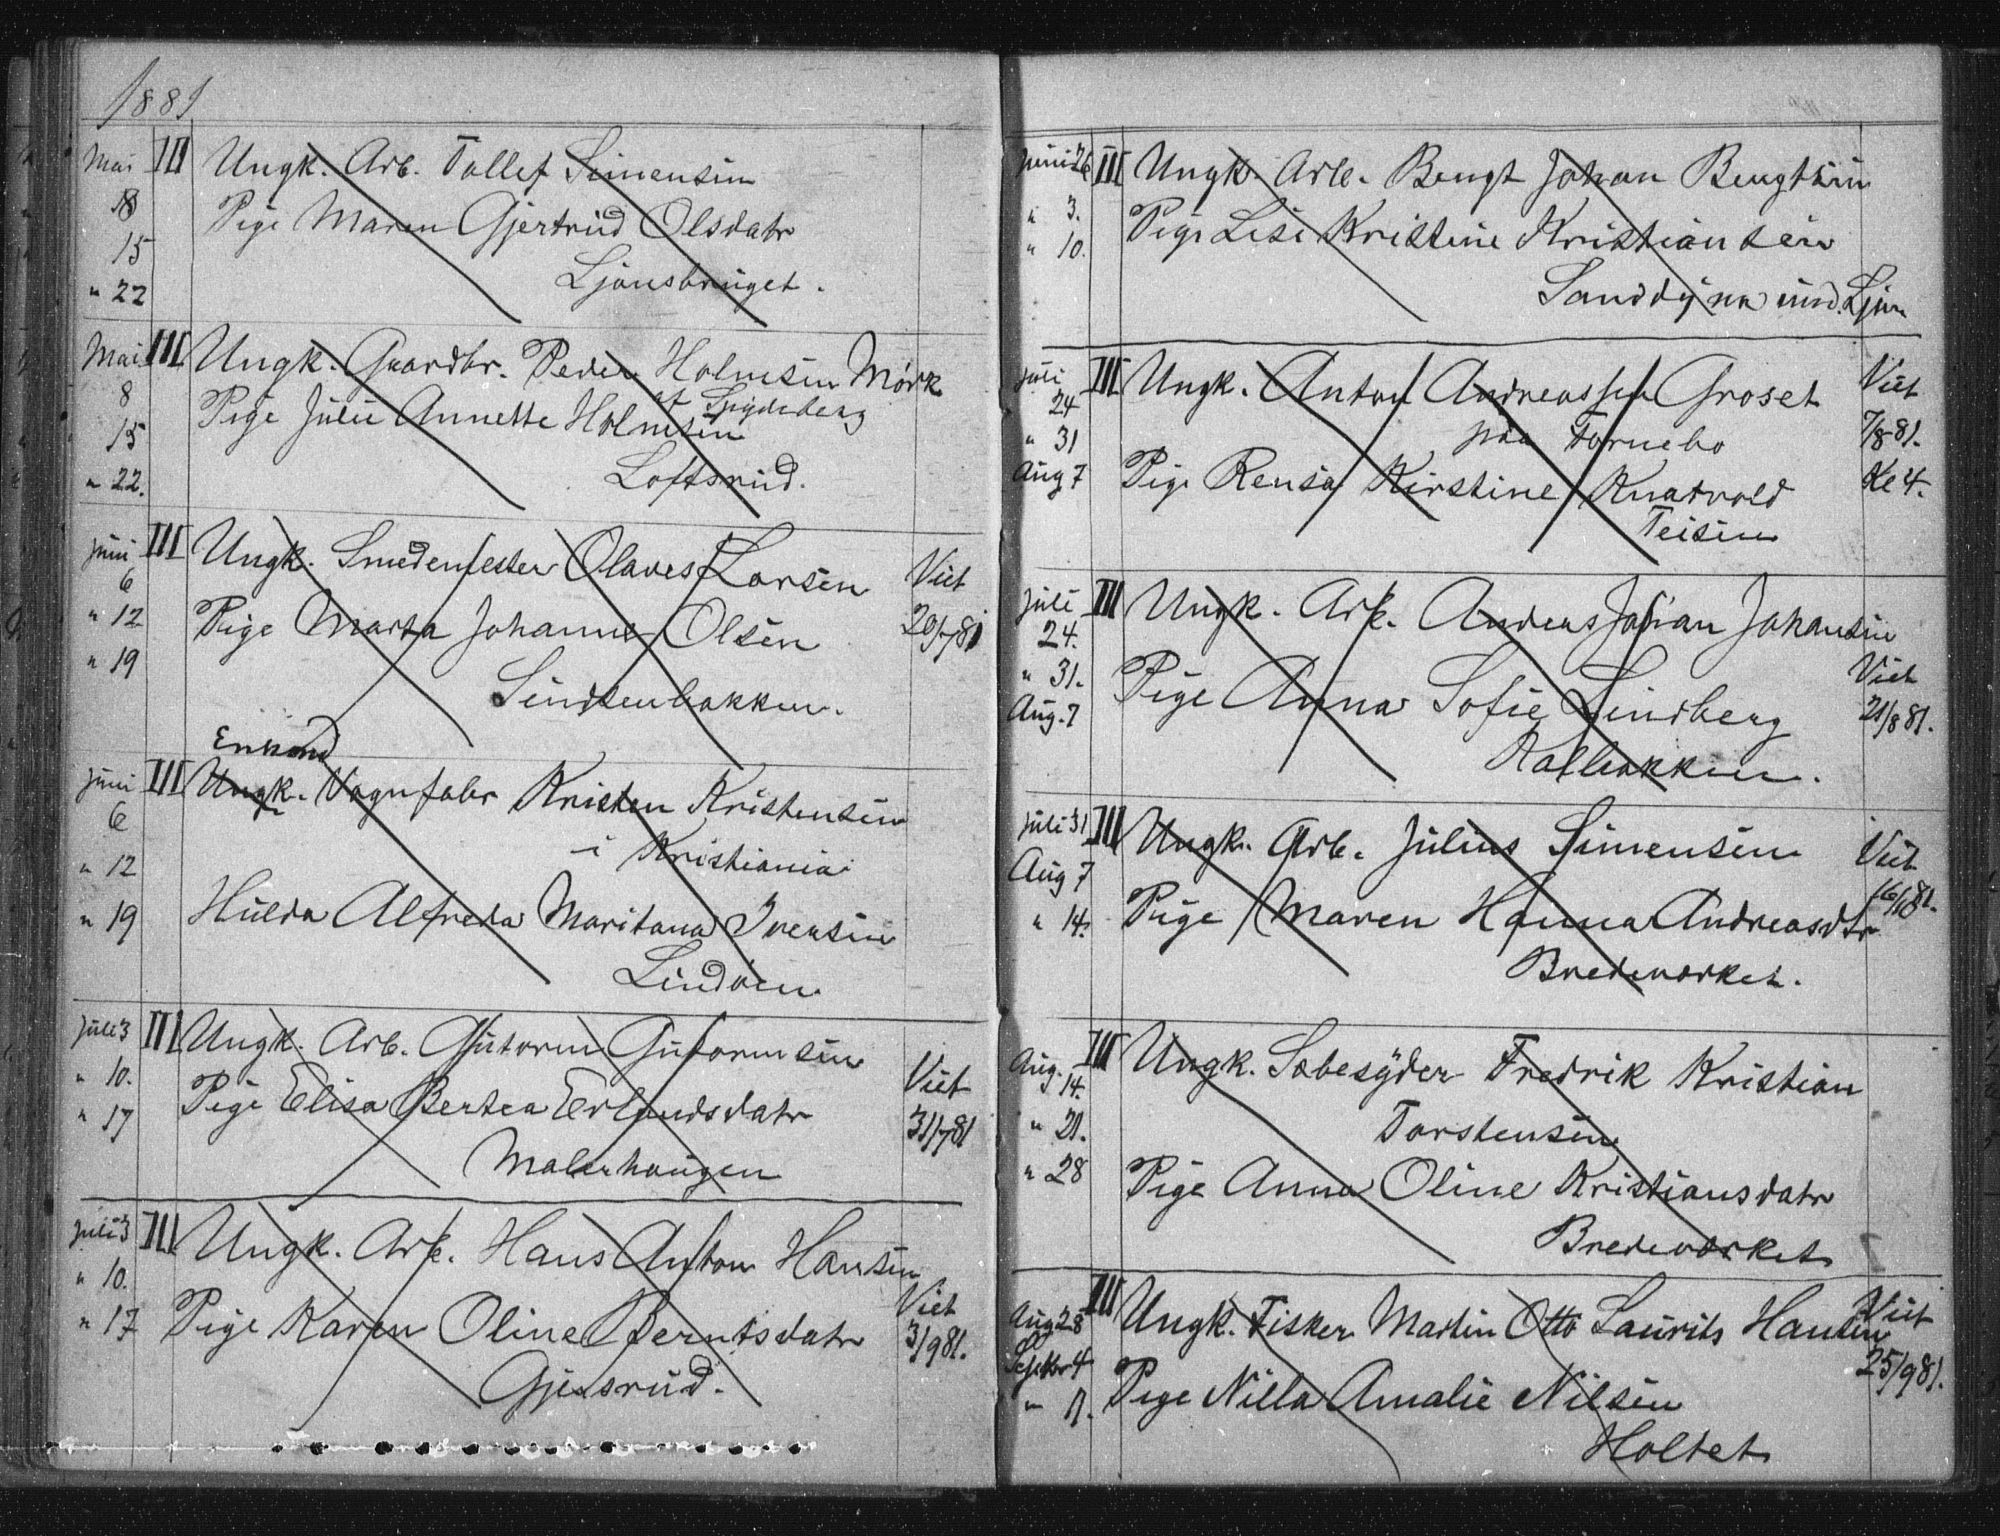 1881
Mai III Ungk. Arb. Tollef Simensen
8 Pige Maren Gjertrud Olsdatr
15 Ljansbruget.
" 22
Mai III Ungk. Gaardbr. Peder Holmsen Mørk
8 Spydeberg
Pige Julie Annette Holmsen
15
" 22. Loftsrud.
Juni III Ungk. Smedemester Olaves Larsen Viet
6
" 12 Pige Marta Johanne Olsen 20/7 81
" 19 Sindsenbakken.
Enkemd
Juni III Ungk. Vognfabr Kristen Kristensen
6 i Kristiania
" 12
" 19 Hulda Alfreda Maritana Ivensen
Lindøen
Juli 3 III Ungk. Arb. Gutorm Gutormsen
" 10. Pige Elisa Bertea Erlandsdatr Viet
" 17 31/7 81
Malerhaugen
Juli 3 III Ungk. Arb. Hans Anton Hansen
" 10. Viet
" 17 Pige Karen Oline Berntsdatr 3/9 81.
Gjersrud.
Juni 26 III Ungk. Arb. Bengt Johan Bengtsen
" 3. Pige Lise Kristine Kristiansen
" 10. Sanddyna und. Ljan
Juli III Ungk. Anton Andreassen Groset Viet
24 paa Fornebo 7/8 81.
" 31
Aug 7 Pige Rensa Kirstine Knatvold Ke 4.
Teisen
Juli III Ungk. Arb. Andreas Johan Johansen
24.
" 31. Pige Anna Sofie Lindberg Viet
Aug. 7 21/8 81.
Kalbakken.
Juli 31 III Ungk. Arb. Julius Simensen Viet
Aug 7 16/10 81.
" 14. Pige Maren Hanna Andreasdtr
Bredeværket.
Aug. 14. III Ungk. Sæbesyder Fredrik Kristian
" 21. Torstensen
" 28 Pige Anna Oline Kristiansdatr
Bredeværket
Aug 28 III Ungk. Fisker Martin Otto Laurits Hansen Viet
Septbr 4 25/9 81.
" 11. Pige Nilla Amalie Nilsen
Holtet